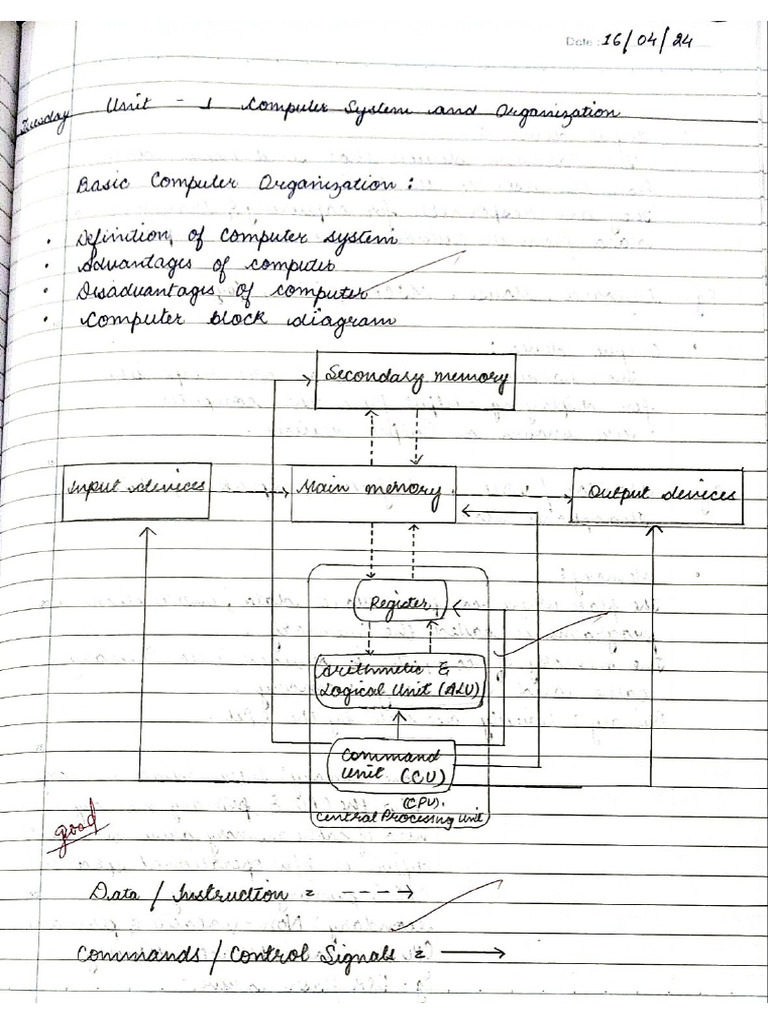 Date : 16/04/24
Tuesday Unit - 1 Computer System and Organization
Basic Computer Organization :
• Definition of computer system
• Advantages of computer
• Disadvantages of computer
• Computer block diagram
Secondary memory
Input devices Main memory Output devices
Register
Arithmetic &
Logical Unit (ALU)
Command
Unit (CU)
(CPU)
Central Processing Unit
good
Data / Instruction =
Commands / Control Signals =